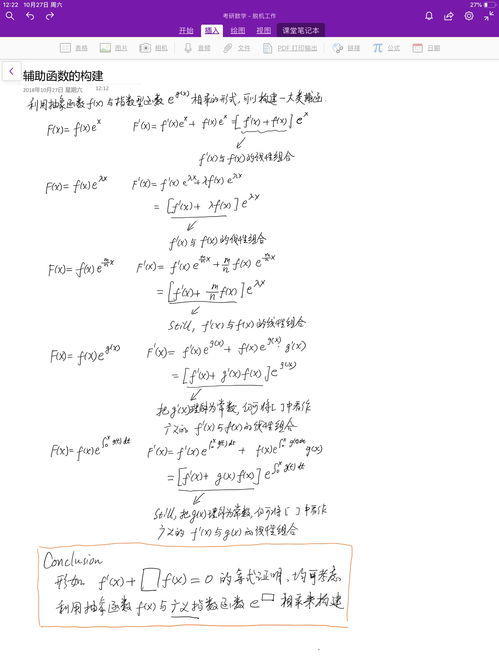 12:22 10月27日 周六
考研数学 - 脱机工作
27%
开始 插入 绘图 视图 课堂笔记本
表格 图片 相机 音频 文件 PDF 打印输出 链接 公式 日期
辅助函数的构建
2018年10月27日 星期六 12:12
利用抽象函数 f(x) 与指数型函数 e^{g(x)} 相乘的形式, 可以构建一大类
F(x) = f(x)e^x F'(x) = f'(x)e^x + f(x)e^x = [f'(x) + f(x)]e^x
f'(x)与f(x)的线性组合
F(x) = f(x)e^{λx} F'(x) = f'(x)e^{λx} + λf(x)e^{λx}
= [f'(x) + λf(x)]e^{λx}
f'(x)与f(x)的线性组合
F(x) = f(x)e^{\frac{m}{n}x} F'(x) = f'(x)e^{\frac{m}{n}x} + \frac{m}{n}f(x)e^{\frac{m}{n}x}
= [f'(x) + \frac{m}{n}f(x)]e^{λx}
Still, f'(x)与f(x)的线性组合
F(x) = f(x)e^{g(x)} F'(x) = f'(x)e^{g(x)} + f(x)e^{g(x)}·g'(x)
= [f'(x) + g'(x)f(x)]e^{g(x)}
把g'(x)理解为常数, 仍可将[ ]中看作
广义的 f'(x)与f(x)的线性组合
F(x) = f(x)e^{∫_0^x g(t)dt} F'(x) = f'(x)e^{∫_0^x g(t)dt} + f(x)e^{∫_0^x g(t)dt} g(x)
= [f'(x) + g(x)f(x)]e^{∫_0^x g(t)dt}
Still, 把g(x)理解为常数, 仍可将[ ]中看作
广义的 f'(x)与g(x)的线性组合
Conclusion
形如 f'(x) + □f(x) = 0 的等式证明, 均可考虑
利用抽象函数 f(x)与广义指数函数 e^□ 相乘来构建